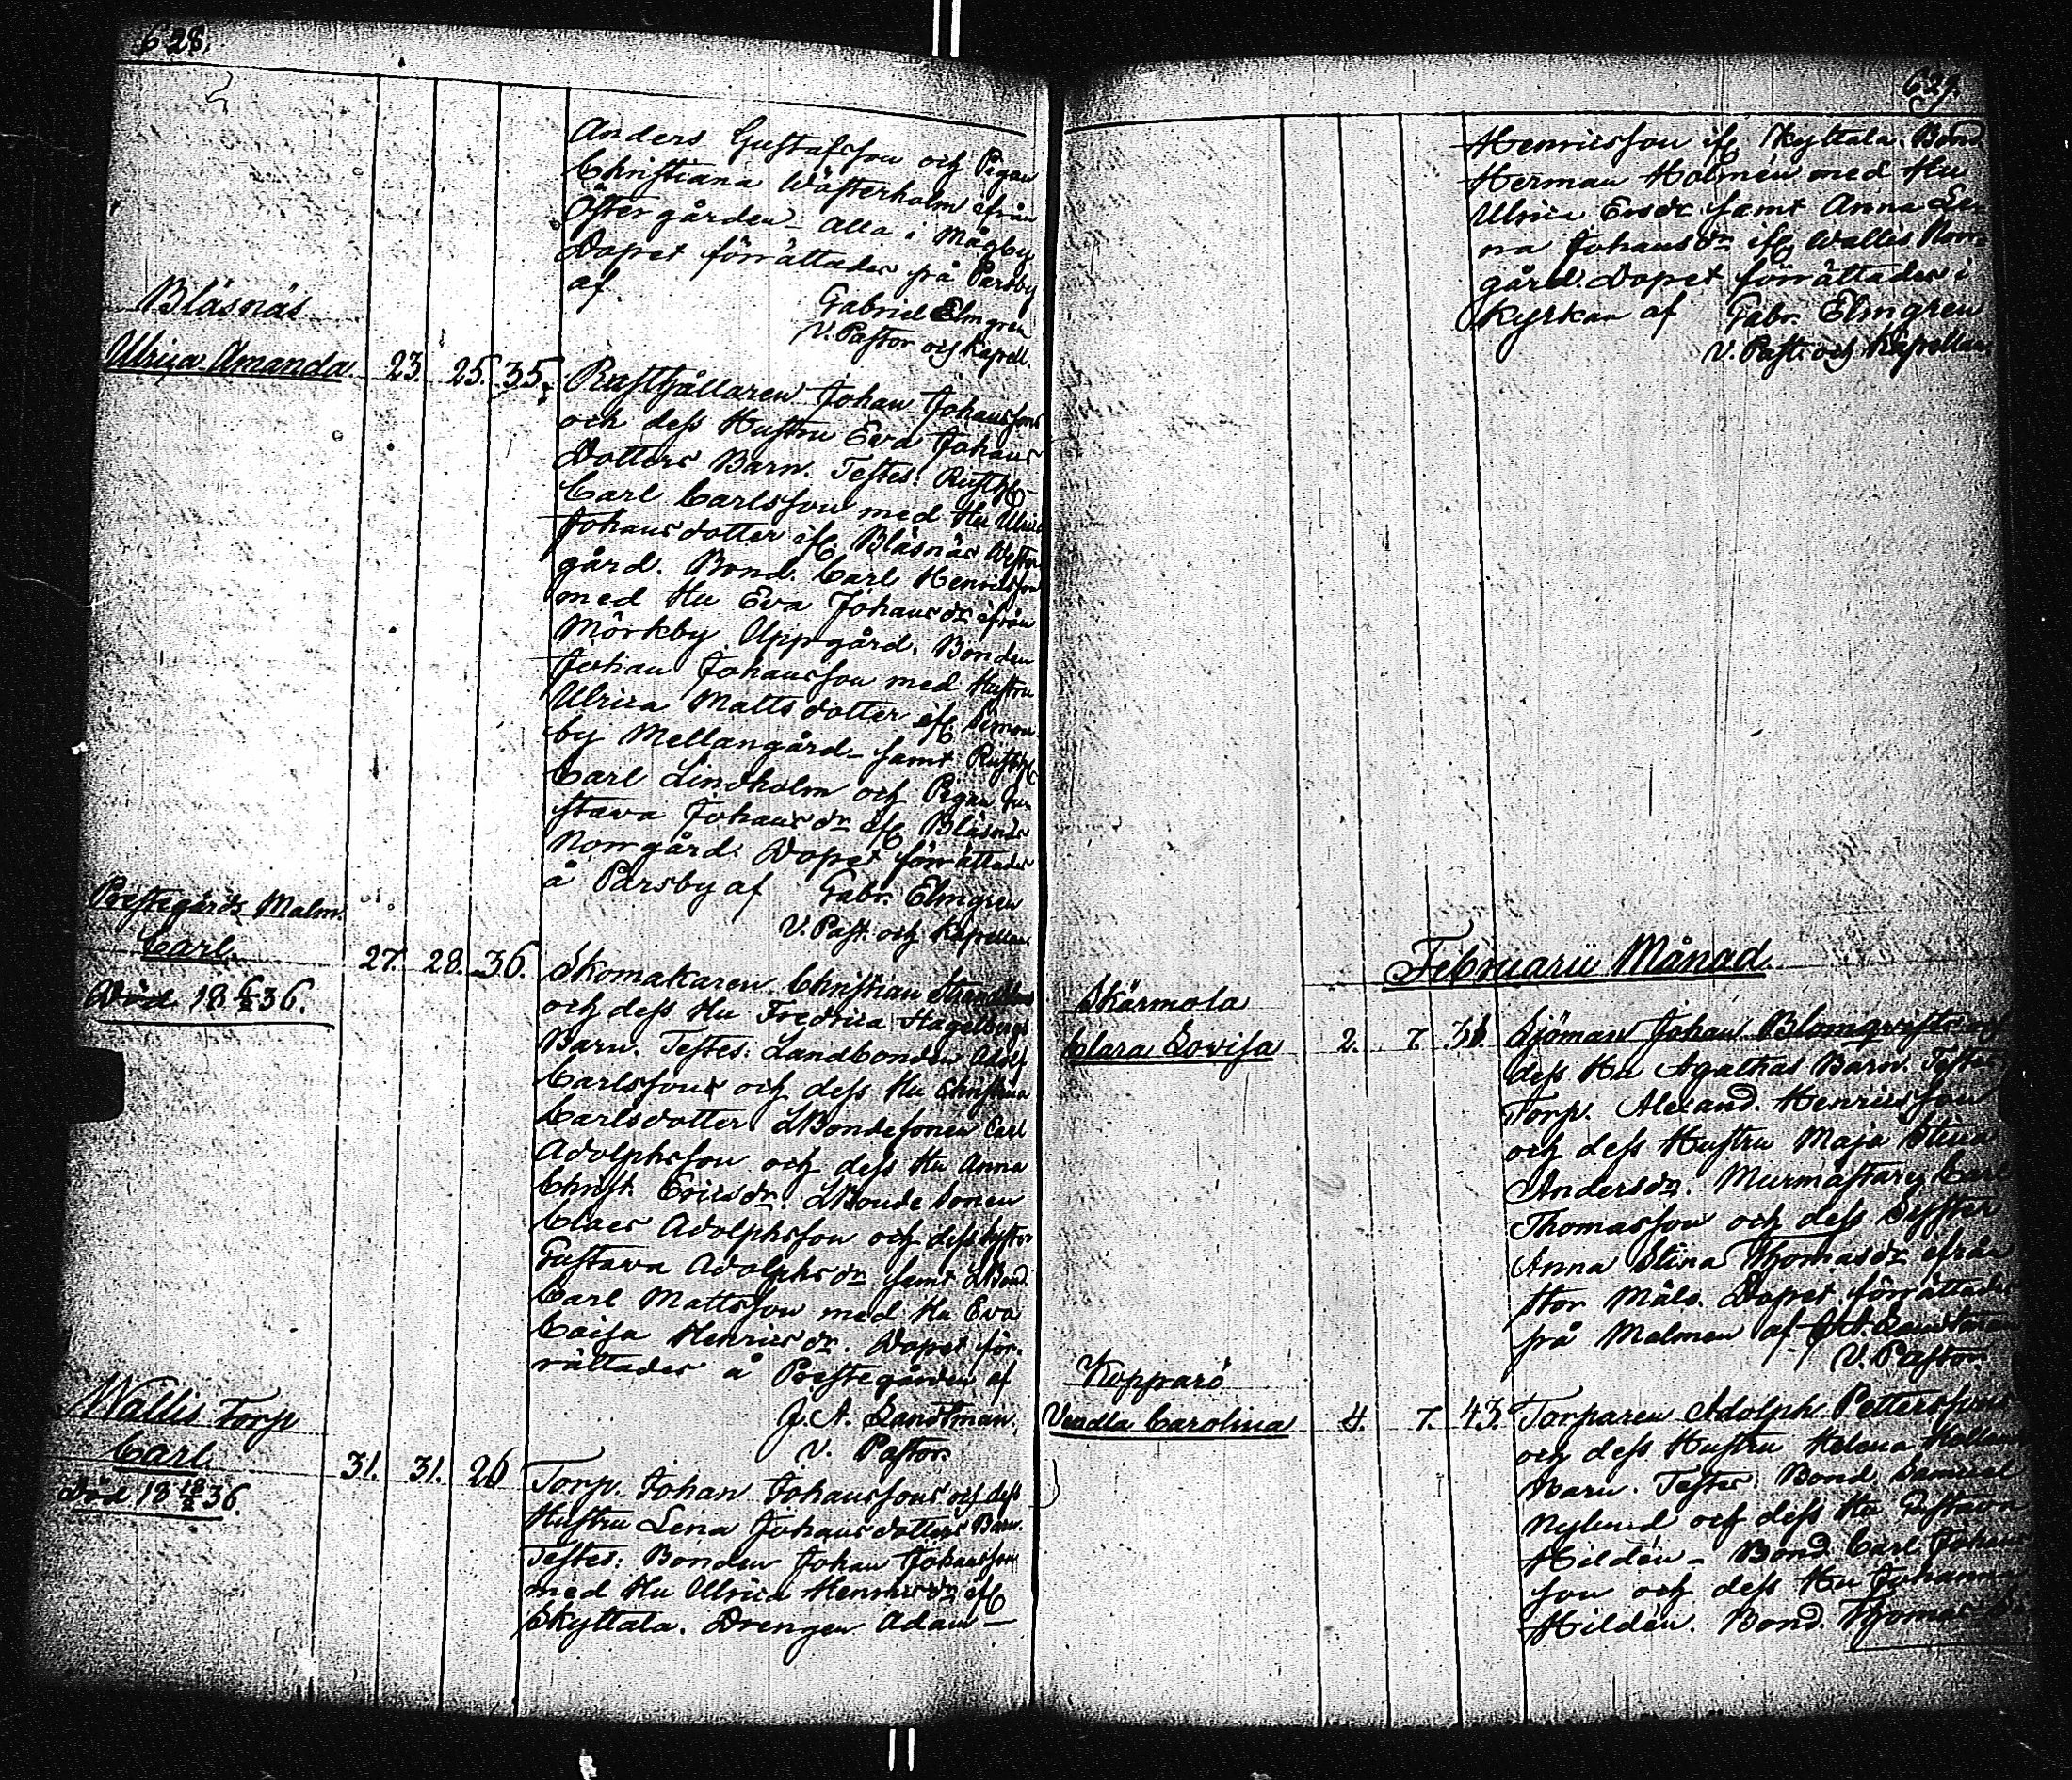 628.
Anders Gustafsson och Pigan
Christiana Wästerholm ifrån
Östergården - alla i Mågby
Dopet förrättades på Parsby
af
Gabriel Elmgren
V. Pastor och Kapell.
Bläsnäs
Ulrica Amanda. 23. 25. 35.
Rusthållaren Johan Johanssons
och dess Hustru Eva Johans
Dotters Barn. Testes: Rusth.
Carl Carlsson med Hu Ulrica
Johansdotter ifr. Bläsnäs Wester
gård. Bond. Carl Henricsson
med Hu Eva Johansdr ifrån
Mörkby Uppgård. Bonden
Johan Johansson med Hustru
Ulrica Mattsdotter ifr. Simon
by Mellangård - samt Rusth.
Carl Lindholm och Pigan Gu-
stava Johansdr ifr. Bläsnäs
Norrgård. Dopet förrättades
å Parsby af Gabr. Elmgren
V. Past. och Kapellan.
Prestegårds Malm.
Carl. 27. 28. 36.
Död 18 6/2 36.
Skomakaren Christian
och dess Hu Fredrica Hagelbergs
Barn. Testes: Landbonden Adolf
Carlssons och dess Hu Christina
Carlsdotter LBondesonen Carl
Adolphsson och dess Hu Anna
Christ. Ericsdr. LBonde sonen
Claes Adolphsson och dess Syster
Gustava Adolphsdr samt LBond.
Carl Mattsson med Hu Eva
Caisa Henricsdr. Dopet för-
rättades å Prestegården af
J. A. Sandtman.
V. Pastor.
Wallis Torp
Carl 31. 31. 26
Död 18 18/2 36.
Torp. Johan Johanssons och dess
Hustru Lena Johansdotters Barn.
Testes: Bonden Johan Johansson
med Hu Ulrica Henricsdr ifr.
Skyttala. Drengen Adam -
629.
Henricsson ifr. Skyttala. Bond
Herman Holmén med Hu
Ulrica Ersdr samt Anna Le-
na Johansdr ifr. Wallis Norr-
gård. Dopet förrättades i
Kyrkan af Gabr. Elmgren
V. Past. och Kapellan
Februarii Månad.
Skärmola
Clara Lovisa 2. 7. 36
Sjöman Johan Blomqvists och
dess Hu Agathas Barn. Testes
Torp. Alexand. Henricsson
och dess Hustru Maja Stina
Andersdr. Murmästaren Carl
Thomasson och dess Syster
Anna Stina Thomasdr ifrån
Stor Måls. Dopet förrättades
på Malmen af J. A. Sandtman
V. Pastor.
Kopparö
Vendla Carolina 4. 7. 43.
Torparen Adolph Petterssons
och dess Hustru Helena
Barn. Testes: Bond. Samuel
Nylund och dess Hu Gustava
Hildén - Bond. Carl Johans-
son och dess Hu Johanna
Hildén. Bond. Thomas